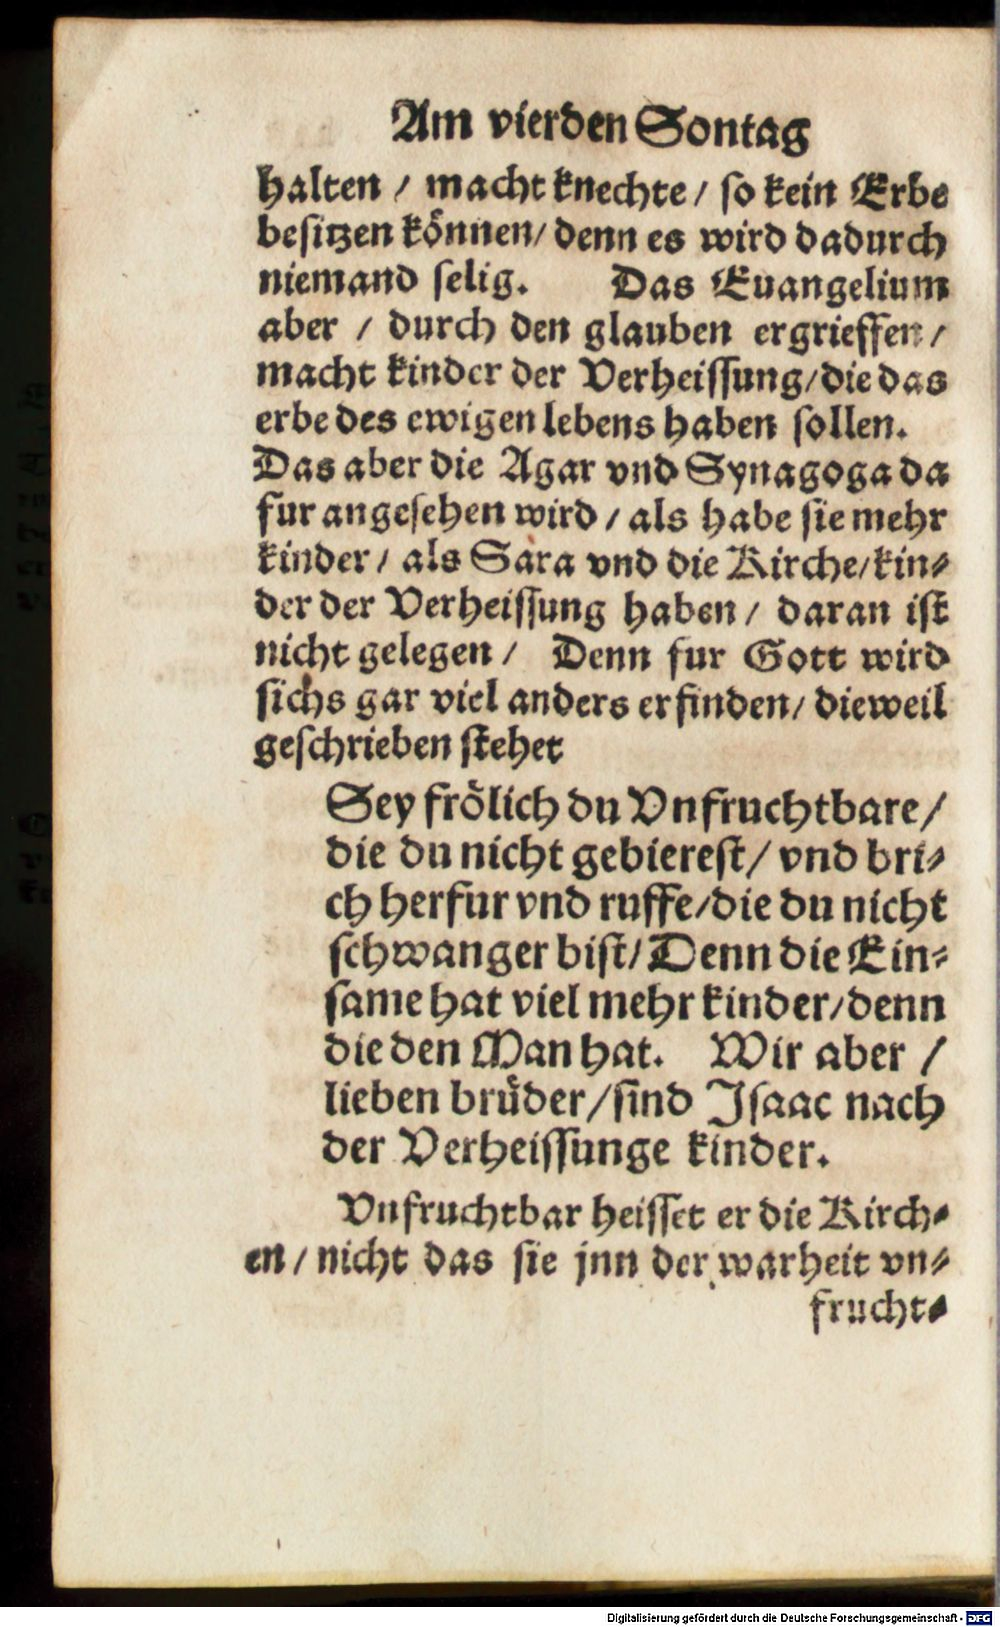 Am vierden Sontag
halten / macht knechte / so kein Erbe
besitzen können / denn es wird dadurch
niemand selig. Das Euangelium
aber / durch den glauben ergrieffen /
macht kinder der Verheissung / die das
erbe des ewigen lebens haben sollen.
Das aber die Agar vnd Synagoga da
fur angesehen wird / als habe sie mehr
kinder / als Sara vnd die Kirche / kin⸗
der der Verheissung haben / daran ist
nicht gelegen / Denn fur Gott wird
sichs gar viel anders erfinden / dieweil
geschrieben stehet
Sey frölich du Vnfruchtbare /
die du nicht gebierest / vnd bri⸗
ch herfur vnd ruffe / die du nicht
schwanger bist / Denn die Ein⸗
same hat viel mehr kinder / denn
die den Man hat. Wir aber /
lieben brüder / sind Isaac nach
der Verheissunge kinder.
Vnfruchtbar heisset er die Kirch⸗
en / nicht das sie jnn der warheit vn⸗
frucht⸗
Digitalisierung gefördert durch die Deutsche Forschungsgemeinschaft - DFG